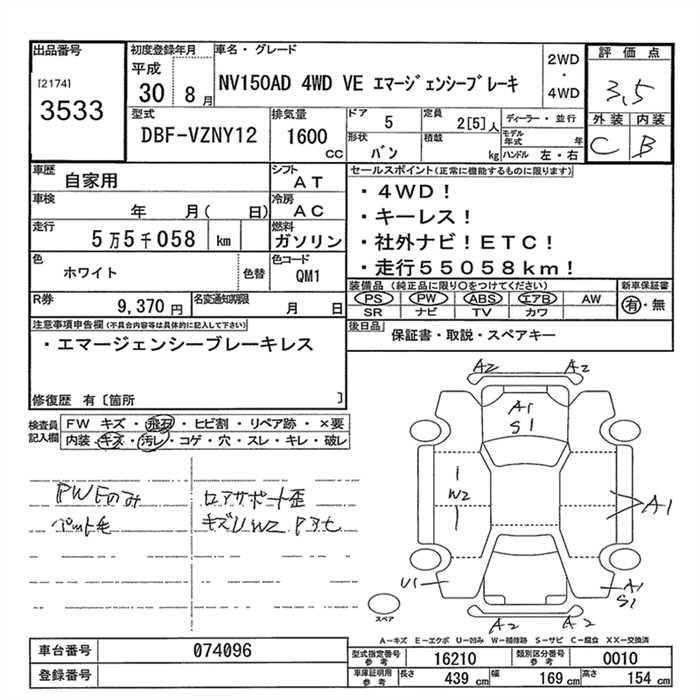 出品番号
[2174]
3533
初度登録年月
平成
30 8月
車名・グレード
NV150AD 4WD VE エマージェンシーブレーキ
2WD
・
4WD
評価点
3,5
外装 内装
C B
型式
DBF-VZNY12
排気量
1600
CC
ドア
5
定員
2[5]人
形状
バン
積載
kg
ディーラー・並行
モデル年式 年
ハンドル 左・右
車歴
自家用
シフト
AT
車検
年 月( 日)
冷房
AC
走行
5万5千058 km
燃料
ガソリン
色
ホワイト
色替
色コード
QM1
R券
9,370円
名変通知期限
月 日
セールスポイント(正常に機能するものに限ります)
・4WD!
・キーレス!
・社外ナビ!ETC!
・走行55058km!
装備品(純正品に限り○をつけてください)
PS PW ABS エアB AW
SR ナビ TV カワ
新車保証書
有・無
後日品
保証書・取説・スペアキー
注意事項申告欄(不具合内容等は具体的に記入して下さい)
・エマージェンシーブレーキレス
修復歴 有[箇所 ]
検査員記入欄
FW キズ・飛石・ヒビ割・リペア跡・×要
内装・キズ・汚レ・コゲ・穴・スレ・キレ・破レ
PWFのみ
ペット毛
ロアサポート歪
キズUW2
A2 A2
A1
S1
W2
A1
U1
A1
S1
A2 A2
スペア
A-キズ E-エクボ U-凹み W-補修跡 S-サビ C-腐食 XX-交換済
車台番号
074096
登録番号
型式指定番号
参考
16210
類別区分番号
参考
0010
車庫証明用
参考
長さ
439 cm
幅
169 cm
高さ
154 cm